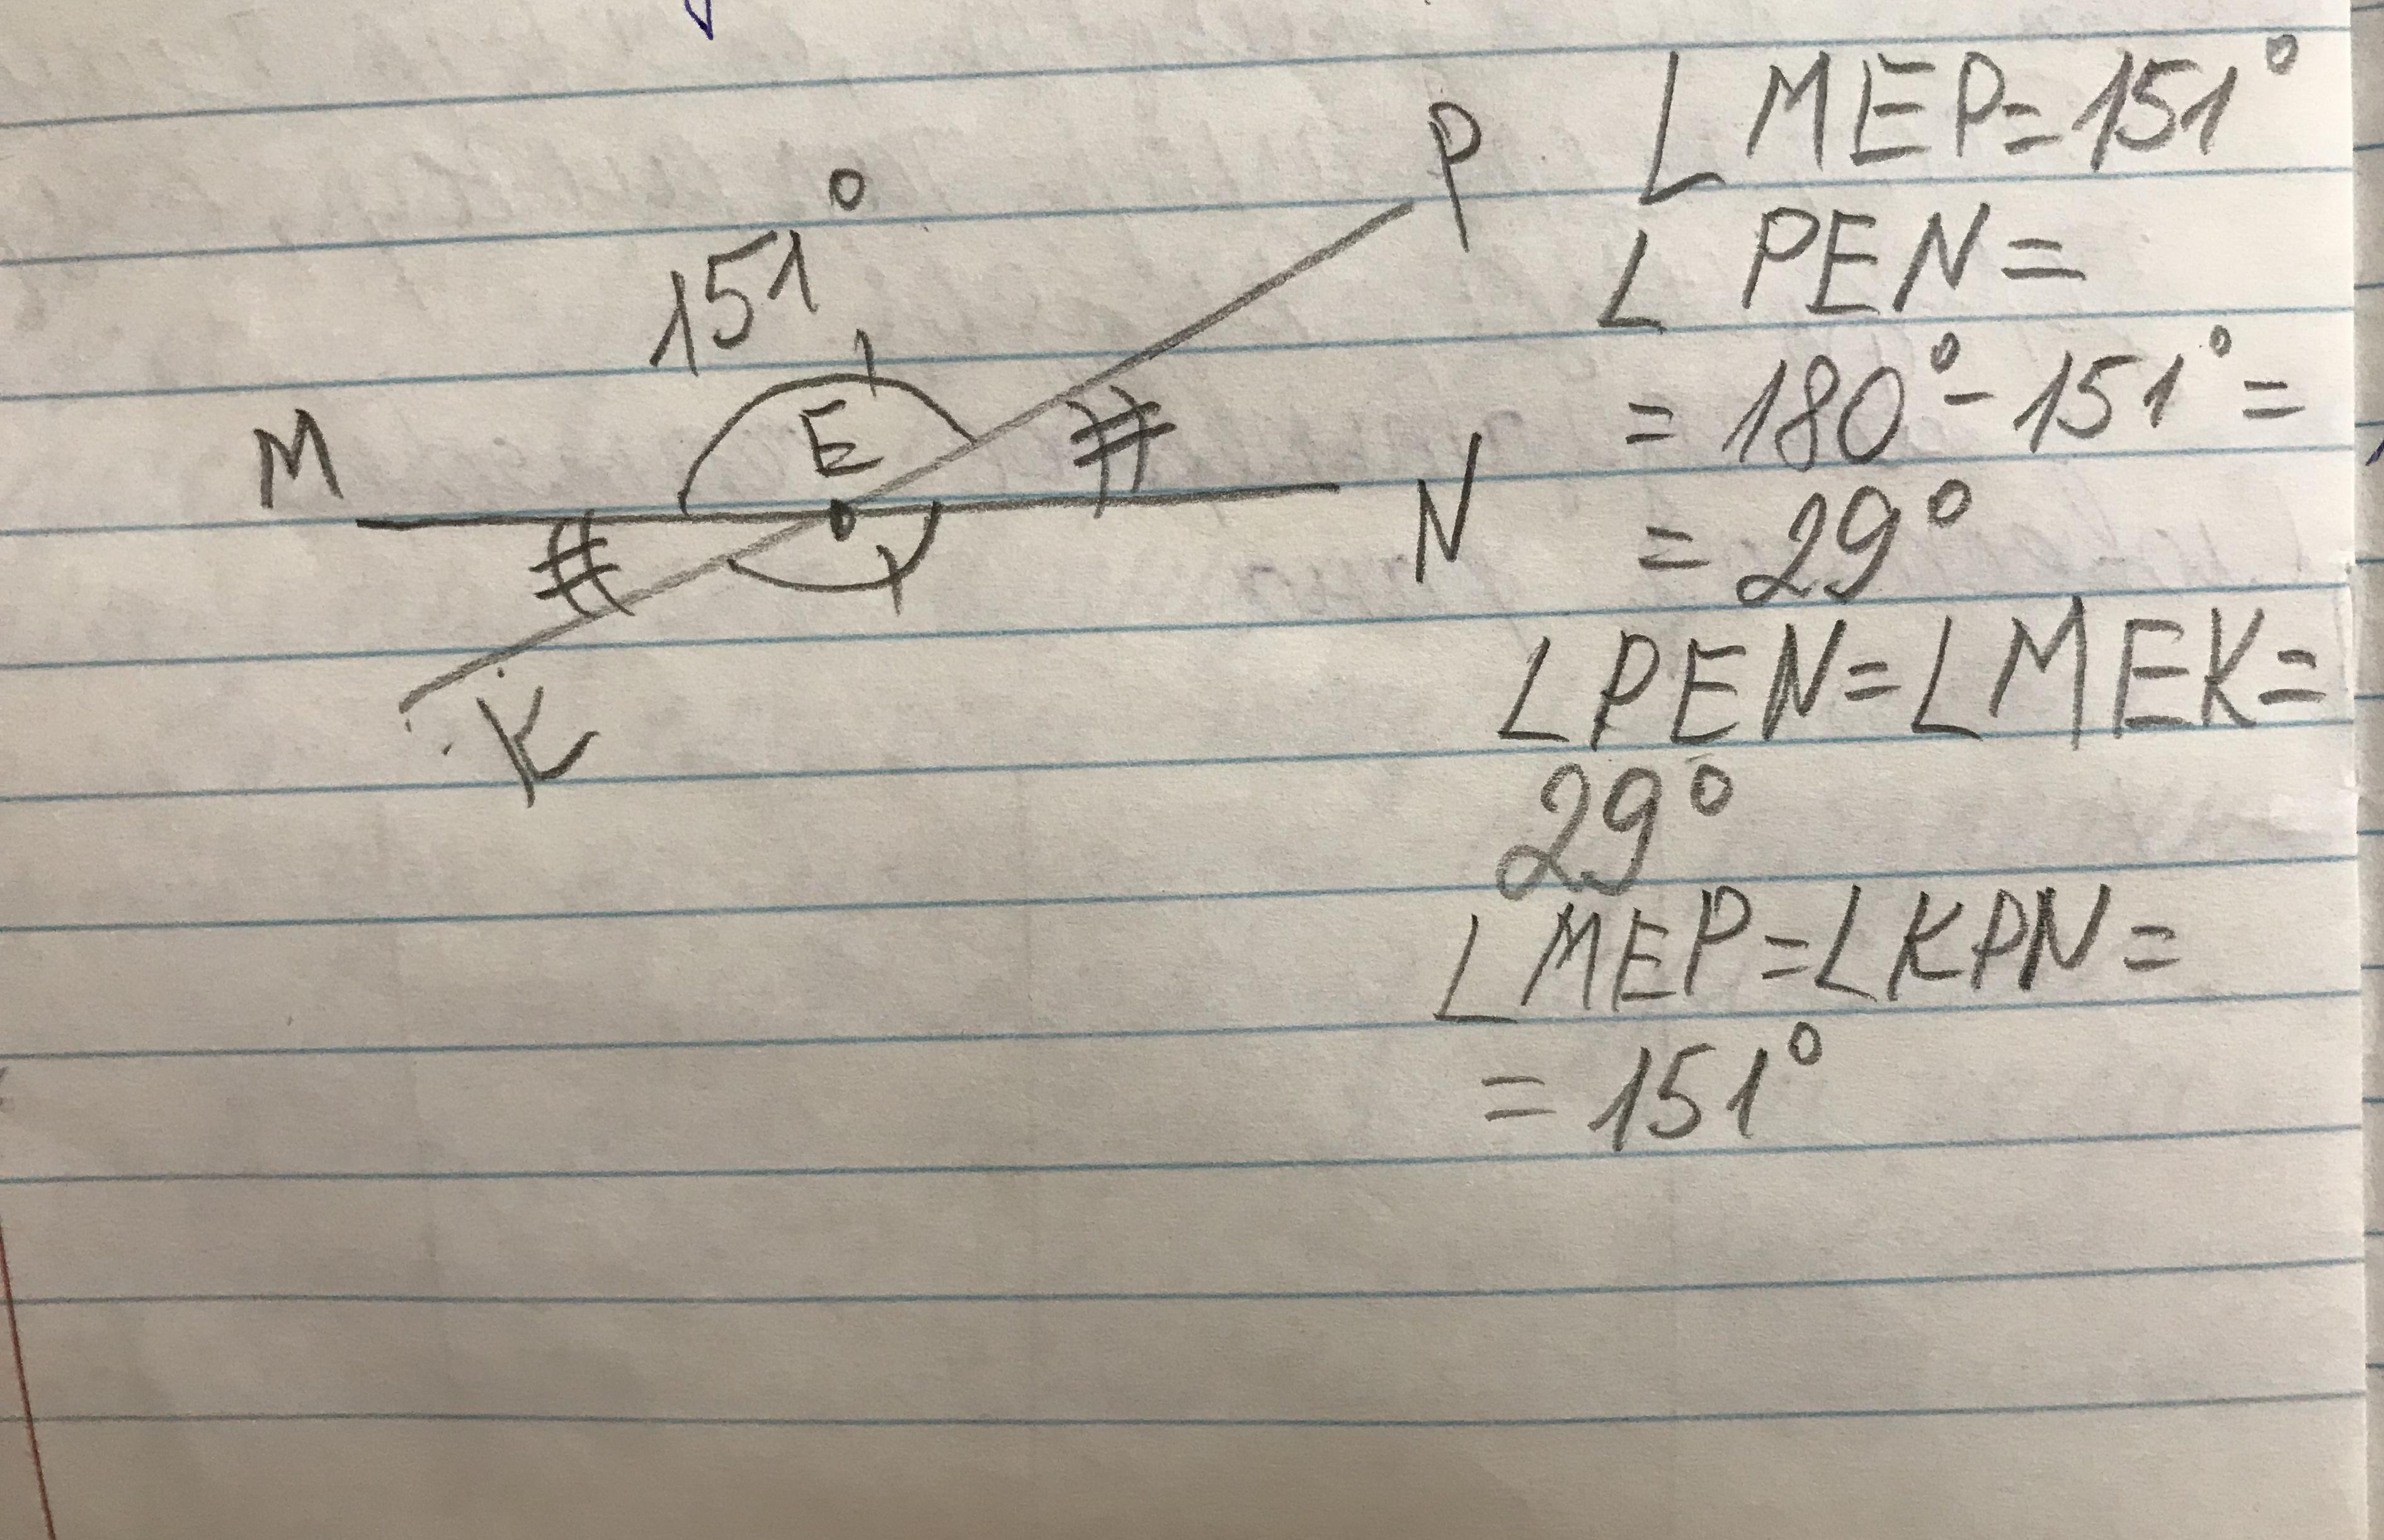 151°
M
E
P
N
K
∠MEP=151°
∠PEN=
=180°-151°=
=29°
∠PEN=∠MEK=
29°
∠MEP=∠KPN=
=151°